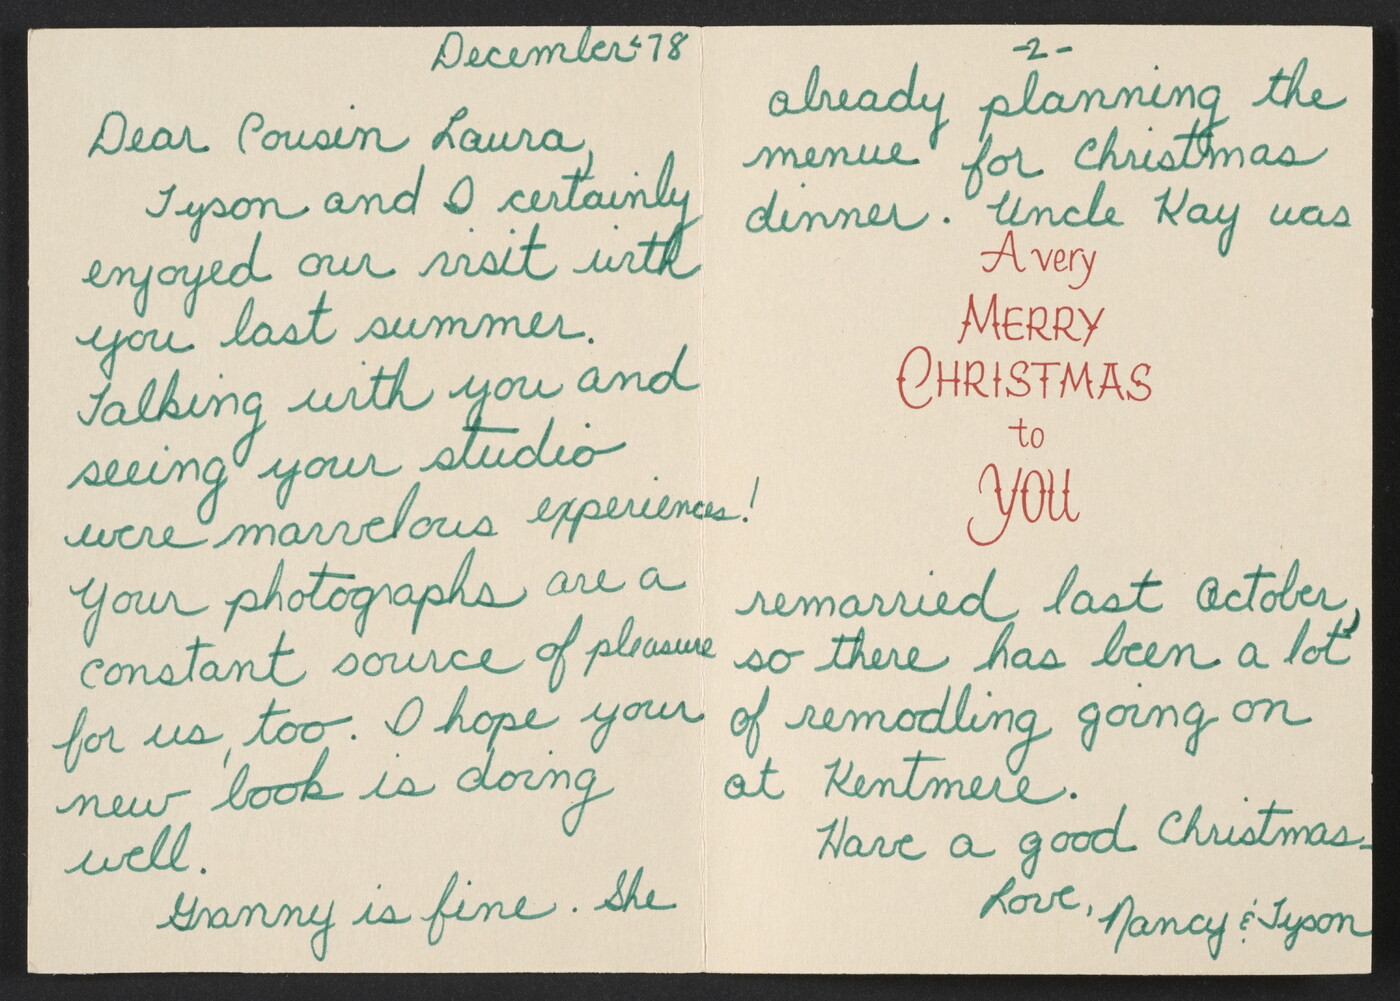 December '78
Dear Cousin Laura,
Tyson and I certainly
enjoyed our visit with
you last summer.
Talking with you and
seeing your studio
were marvelous experiences!
Your photographs are a
constant source of pleasure
for us, too. I hope your
new book is doing
well.
Granny is fine. She
-2-
already planning the
menue for Christmas
dinner. Uncle Kay was
A very
MERRY
CHRISTMAS
to
YOU
remarried last October,
so there has been a lot
of remodling going on
at Kentmere.
Have a good Christmas-
Love, Nancy & Tyson